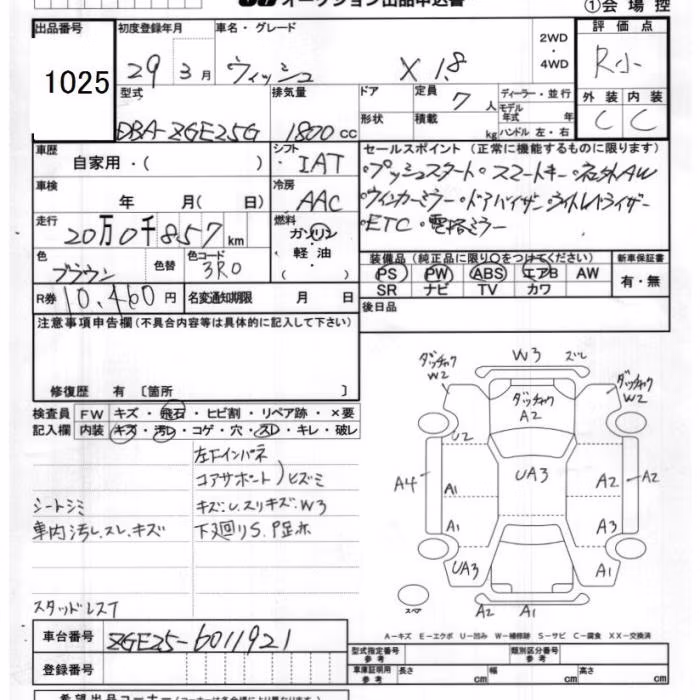 オークション出品申込書
①会場控
出品番号 1025
初度登録年月 29 3月
車名・グレード ウィッシュ X 1.8
2WD・4WD
評価点 R小
外装 内装
C C
型式 DBA-ZGE25G
排気量 1800cc
ドア
形状
定員 7人
積載 kg
ディーラー・並行
モデル年式 年
ハンドル 左・右
車歴 自家用・( )
シフト IAT
車検 年 月( 日)
冷房 AAC
走行 20万0千857km
燃料 ガソリン・軽油・( )
色 ブラウン
色替
色コード 3R0
R券 10,460円
名変通知期限 月 日
セールスポイント(正常に機能するものに限ります)
・プッシュスタート・スマートキー・社外AW
・ウィンカーミラー・ドアバイザー
・ETC・電格ミラー
装備品(純正品に限り○をつけてください)
PS PW ABS エアB AW
SR ナビ TV カワ
新車保証書
有・無
後日品
注意事項申告欄(不具合内容等は具体的に記入して下さい)
修復歴 有 〔箇所 〕
検査員記入欄
FW キズ・飛石・ヒビ割・リペア跡・×要
内装 キズ・汚レ・コゲ・穴・スレ・キレ・破レ
左下インパネ
コアサポート)ヒズミ
シートシミ
キズ・U.スリキズ・W3
車内汚し.スレ.キズ
下廻りS.P足ホ
スタッドレス7
ダッチャク W2
W3 ズレ
ダッチャク W2
ダッチャク A2
U2
UA3
A4
A1
A2
A2
A1
A3
UA3
A1
スペア
A2 A1
A－キズ E－エクボ U－凹み W－補修跡 S－サビ C－腐食 XX－交換済
車台番号 ZGE25-6011921
登録番号
型式指定番号 参考
類別区分番号 参考
車庫証明用 参考
長さ cm
幅 cm
高さ cm
希望出品コーナー